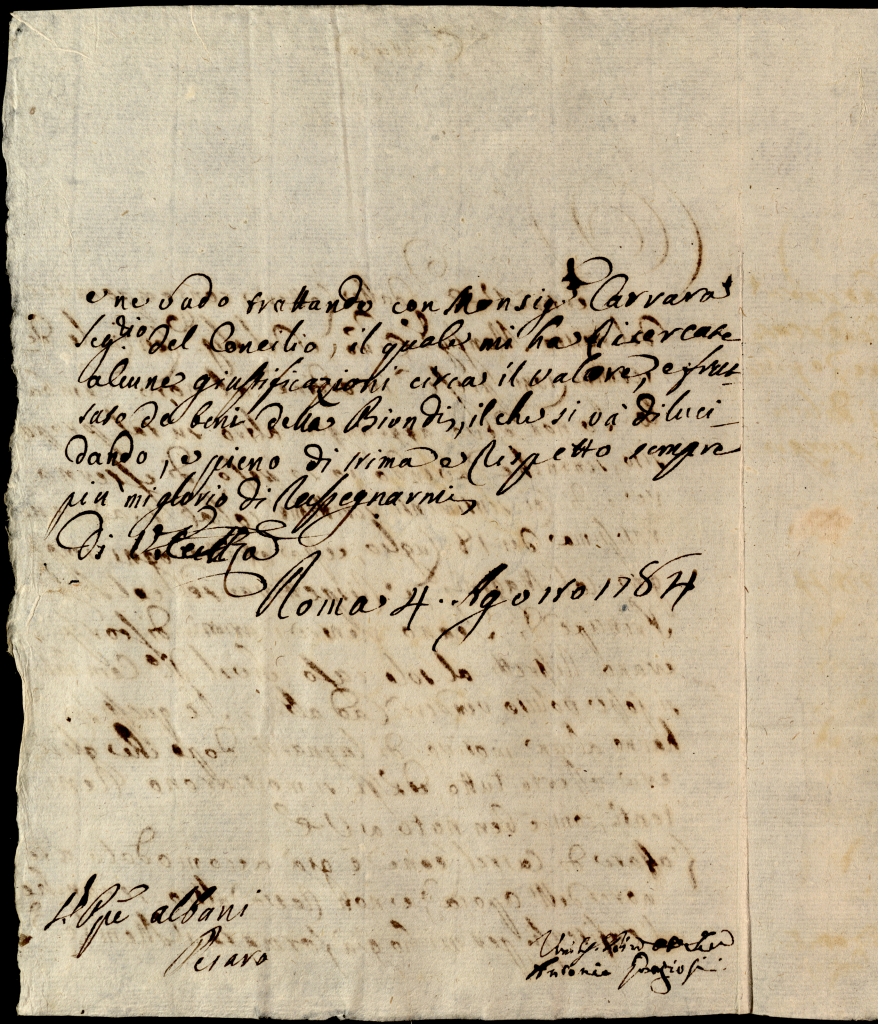 e ne vado trattando con Monsig.r Carrara
Seg.rio del Concilio, il quale mi ha ricercate
alcune giustificazioni circa il valore, e frut-
tato de beni della Biondi, il che si và diluci-
dando, e pieno di stima e rispetto sempre
più mi glorio di rassegnarmi
di V. Eccza
Roma 4. Agosto 1784
Pñe albani
Pesaro
Antonio Graziosi